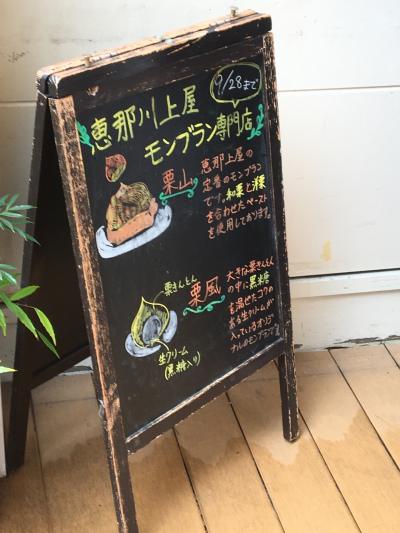 9/28まで
恵那川上屋
モンブラン専門店
栗山
恵那川上屋の
定番のモンブラン
です。和栗と洋栗
を合わせたペースト
を使用しております。
栗きんとん
栗風
大きな栗きんとん
の中に黒糖
を混ぜたコクの
ある生クリームが
入っているオリジ
ナルのモンブランです
生クリーム
(黒糖入り)